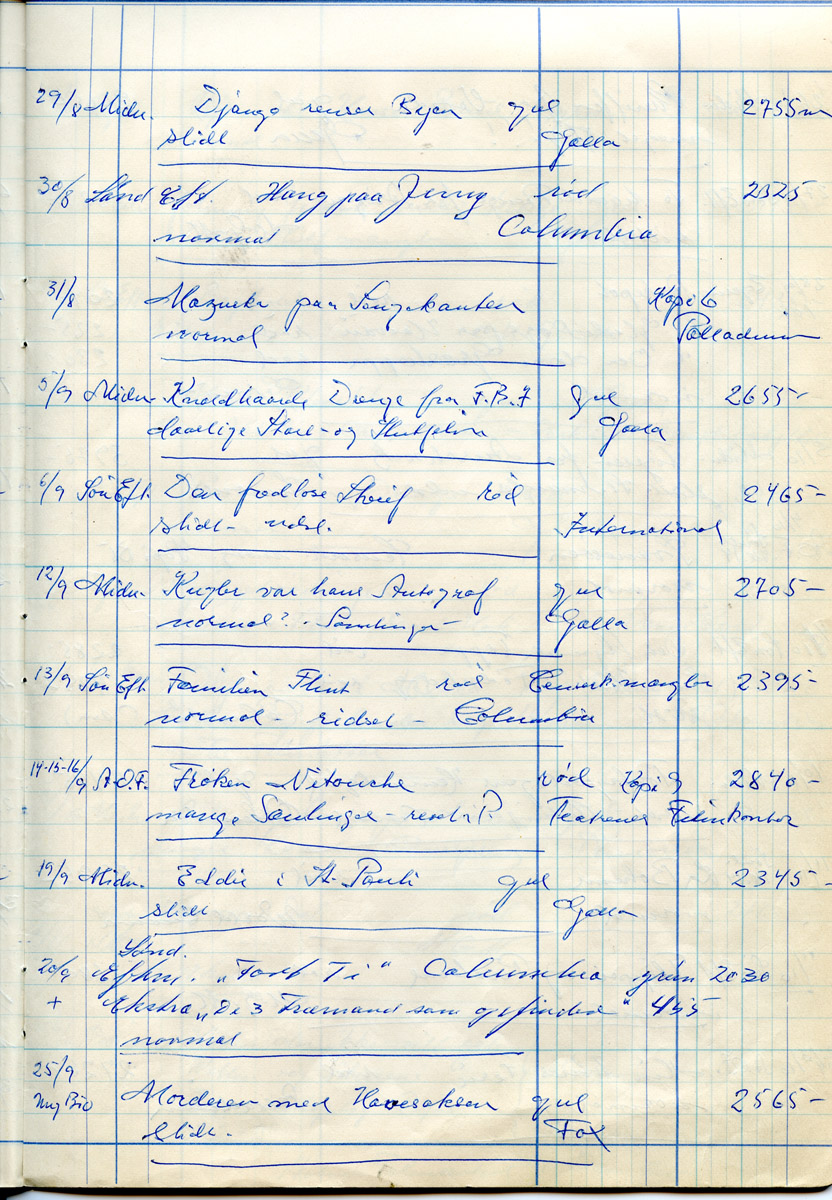 29/8 Midn. Django renser Byen gul 2755 m
slidt Galla
30/8 Sønd Eft. Hang paa Jerry rød 2325
normal Columbia
31/8 Mazurka paa Sengekanten Kopi 6
normal Palladium
5/9 Midn- Knaldhaarde Drenge fra F.B.I gul 2655-
daarlige Start- og Slutfilm Galla
6/9 Søn Eft. Den fredløse Sherif rød 2465-
slidt - International
12/9 Midn- Kugler var hans Autograf gul 2705-
normal? - Samlinger - Galla
13/9 Søn Eft. Familien Flint rød Censurk. mangler 2395-
normal - ridset - Columbia
14-15-16/9 A.O.F. Frøken Nitouche rød Kopi 9 2840-
mange Samlinger - Teatrenes Filmkontor
19/9 Midn. Eddie i St. Pauli gul 2345-
slidt Galla
Sønd.
20/9 Eftm. „Fort Ti“ Columbia grøn 2030
+ Ekstra „De 3 Træmænd som opfindere“ 455
normal
25/9
Ny Bio Morderen med Havesaksen gul 2565-
slidt. Fox